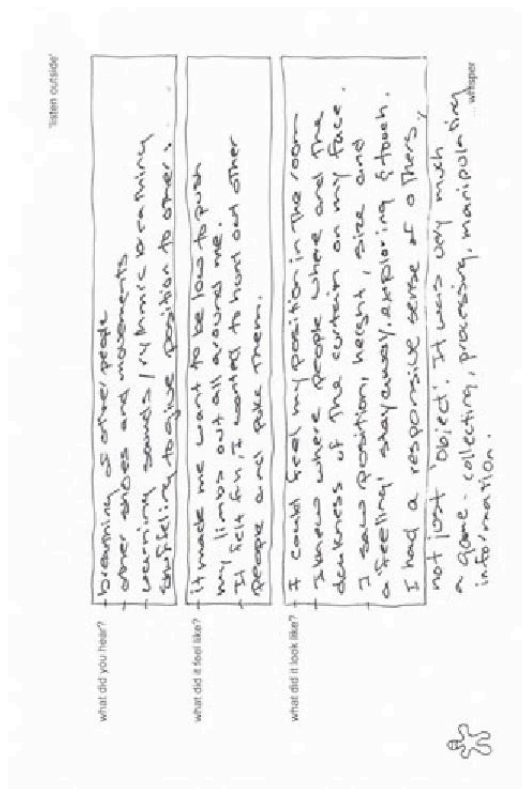 'listen outside'
what did you hear?
- breathing of other people
- other shoes and movements
- warning sounds / rythmic breathing
shuffeling to give position to others...
what did it feel like?
- it made me want to be low to push
my limbs out all around me.
- It felt fun, I wanted to hunt out other
people and poke them.
what did it look like?
- I could feel my position in the room
- I knew where people where and the
darkness of the curtain on my face.
I saw position, height, size and
a feeling, exploring & touch.
I had a responsive sense of others,
not just 'object'. It was very much
a game - collecting, processing, manipulating
information.
... whisper